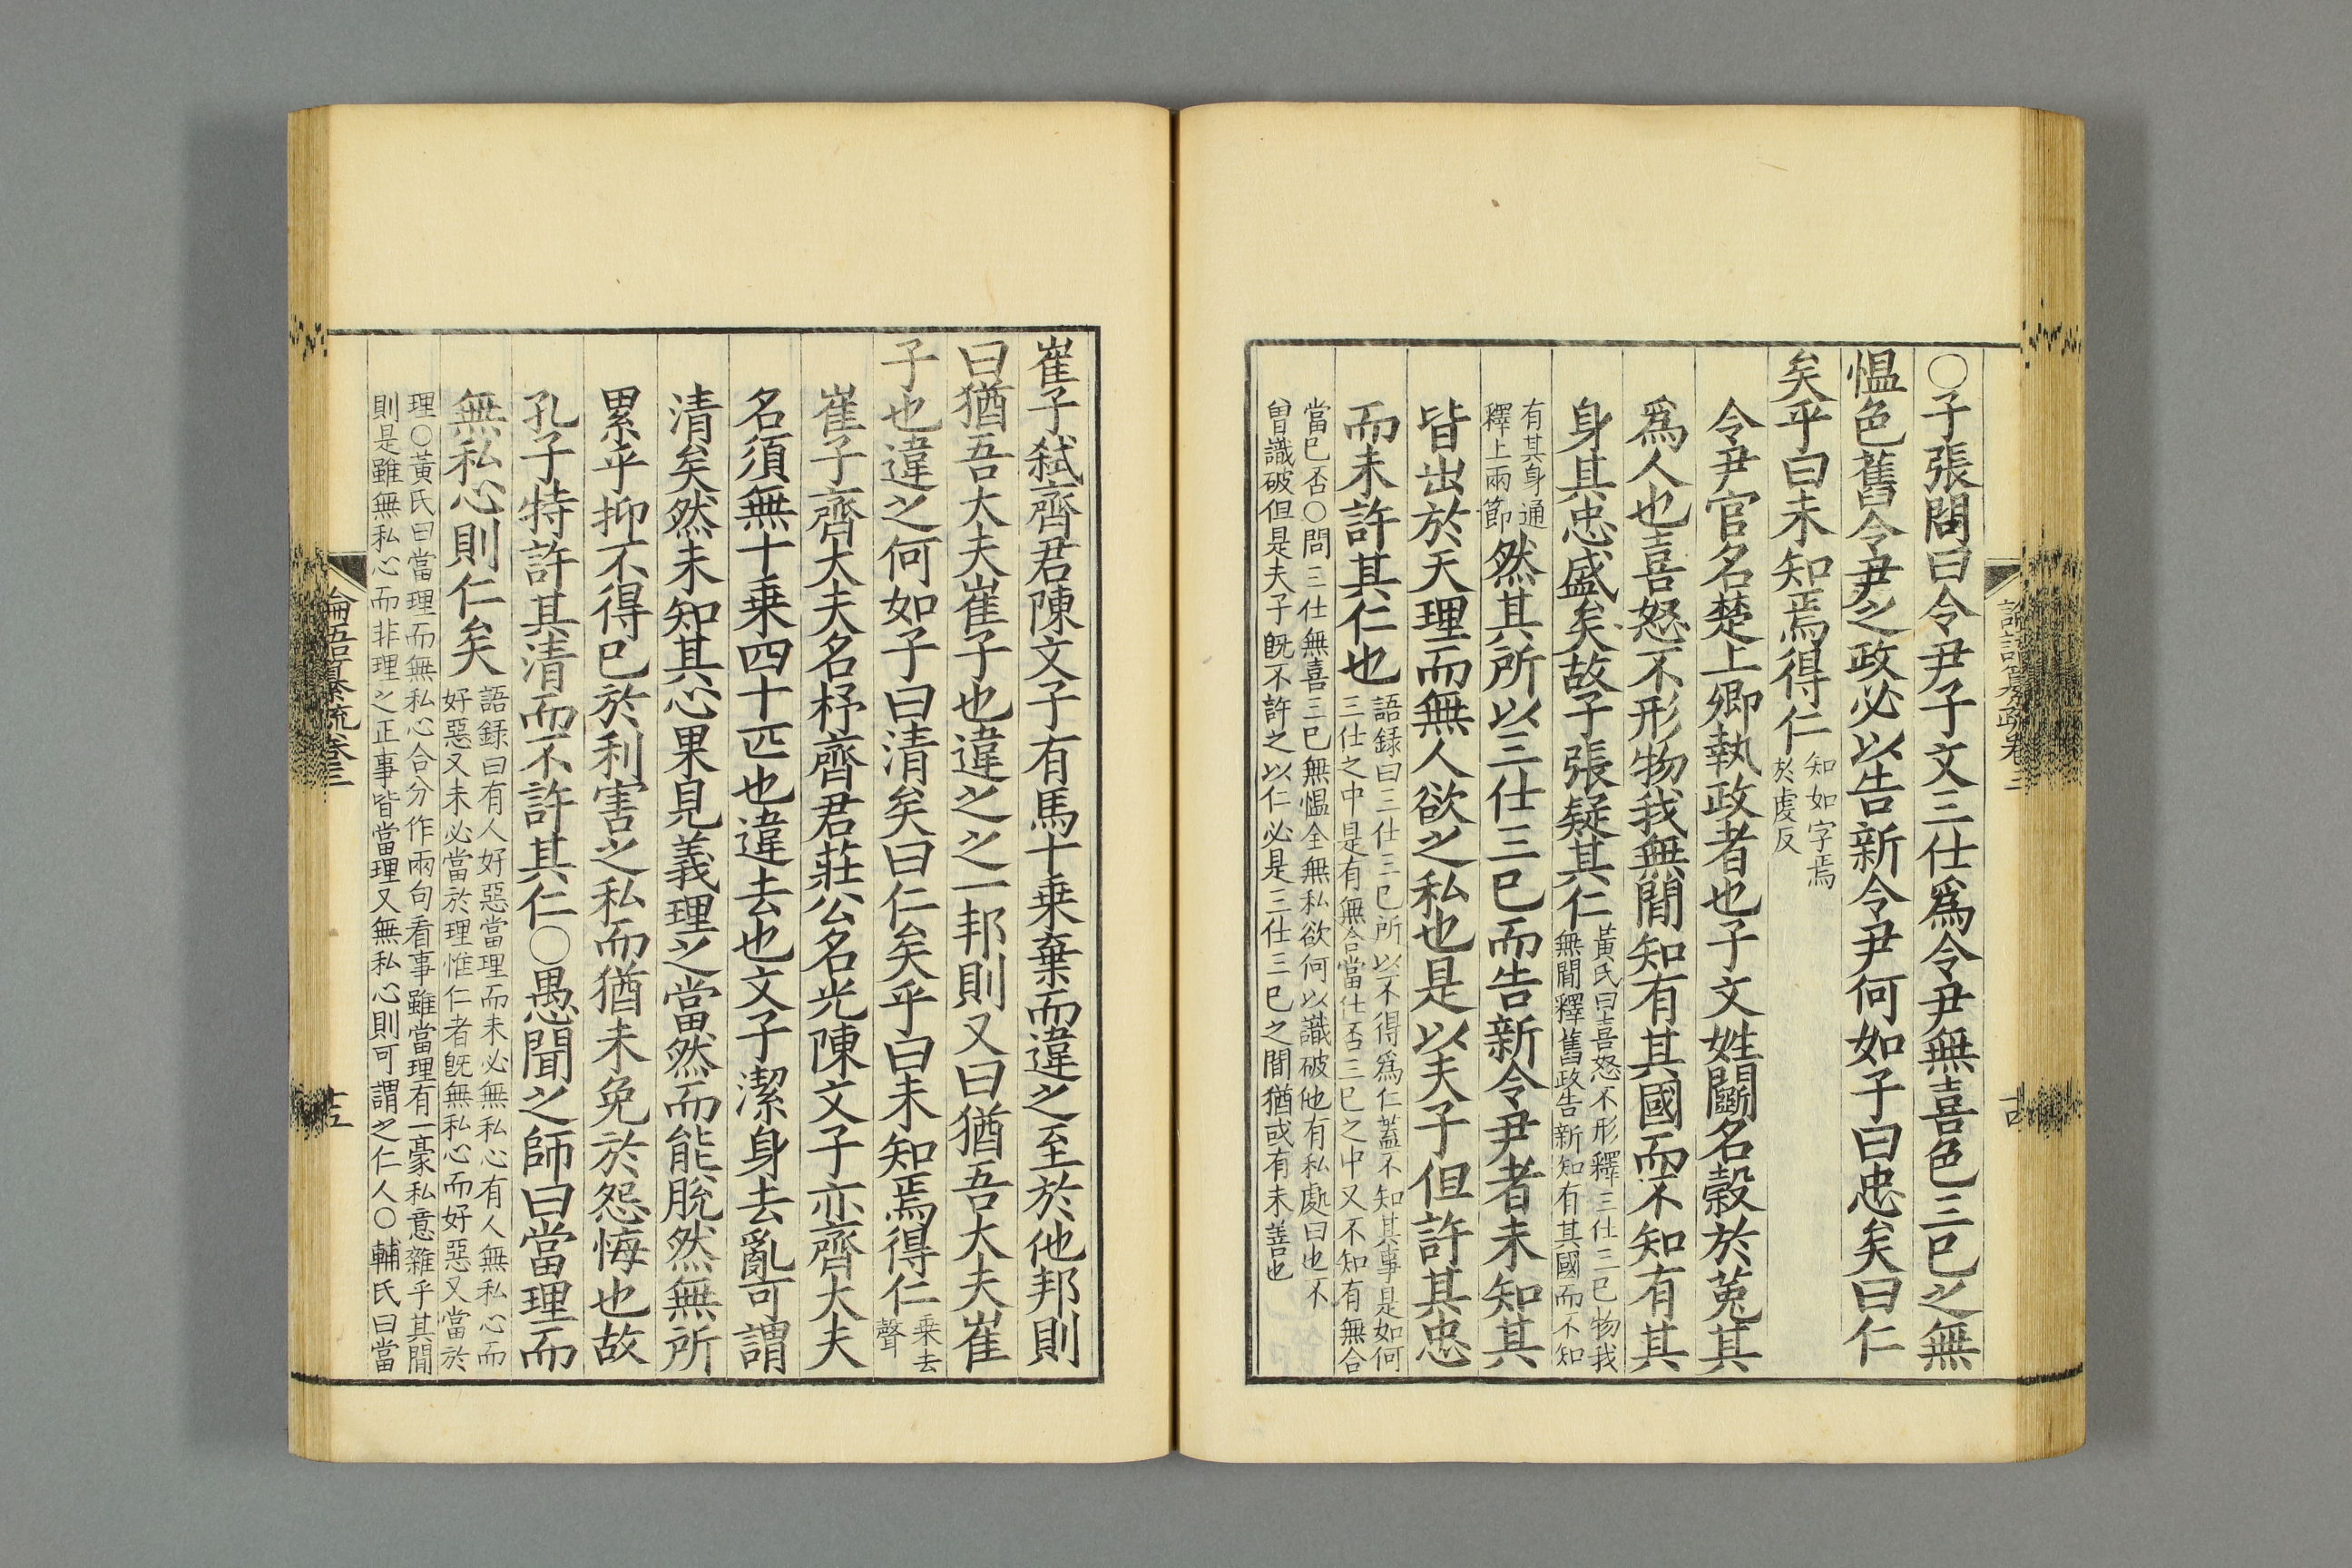 ○子張問曰令尹子文三仕爲令尹無喜色三已之無
慍色舊令尹之政必以告新令尹何如子曰忠矣曰仁
矣乎曰未知焉得仁
知如字焉
於虔反
令尹官名楚上卿執政者也子文姓鬭名穀於菟其
爲人也喜怒不形物我無間知有其國而不知有其
身其忠盛矣故子張疑其仁
黃氏曰喜怒不形釋三仕三已物我
無間釋舊政告新知有其國而不知
有其身通
釋上兩節
然其所以三仕三已而告新令尹者未知其
皆出於天理而無人欲之私也是以夫子但許其忠
而未許其仁也
語録曰三仕三已所以不得爲仁蓋不知其事是如何
三仕之中是有無合當仕否三已之中又不知有無合
當已否○問三仕無喜三已無慍全無私欲何以識破他有私處曰也不
曾識破但是夫子旣不許之以仁必是三仕三已之間猶或有未善也
崔子弑齊君陳文子有馬十乗棄而違之至於他邦則
曰猶吾大夫崔子也違之之一邦則又曰猶吾大夫崔
子也違之何如子曰清矣曰仁矣乎曰未知焉得仁
乗去
聲
崔子齊大夫名杼齊君莊公名光陳文子亦齊大夫
名須無十乗四十匹也違去也文子潔身去亂可謂
清矣然未知其心果見義理之當然而能脫然無所
累乎抑不得已於利害之私而猶未免於怨悔也故
孔子特許其清而不許其仁○愚聞之師曰當理而
無私心則仁矣
語録曰有人好惡當理而未必無私心有人無私心而
好惡又未必當於理惟仁者旣無私心而好惡又當於
理○黃氏曰當理而無私心合分作兩句看事雖當理有一豪私意雜乎其間
則是雖無私心而非理之正事皆當理又無私心則可謂之仁人○輔氏曰當
論語纂疏卷三
十五